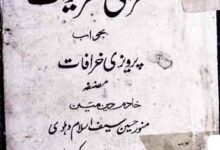 بجواب
پرویزی خرافات
مصنفہ
خادم دین متین
منور حسین سیف الاسلام دہلوی